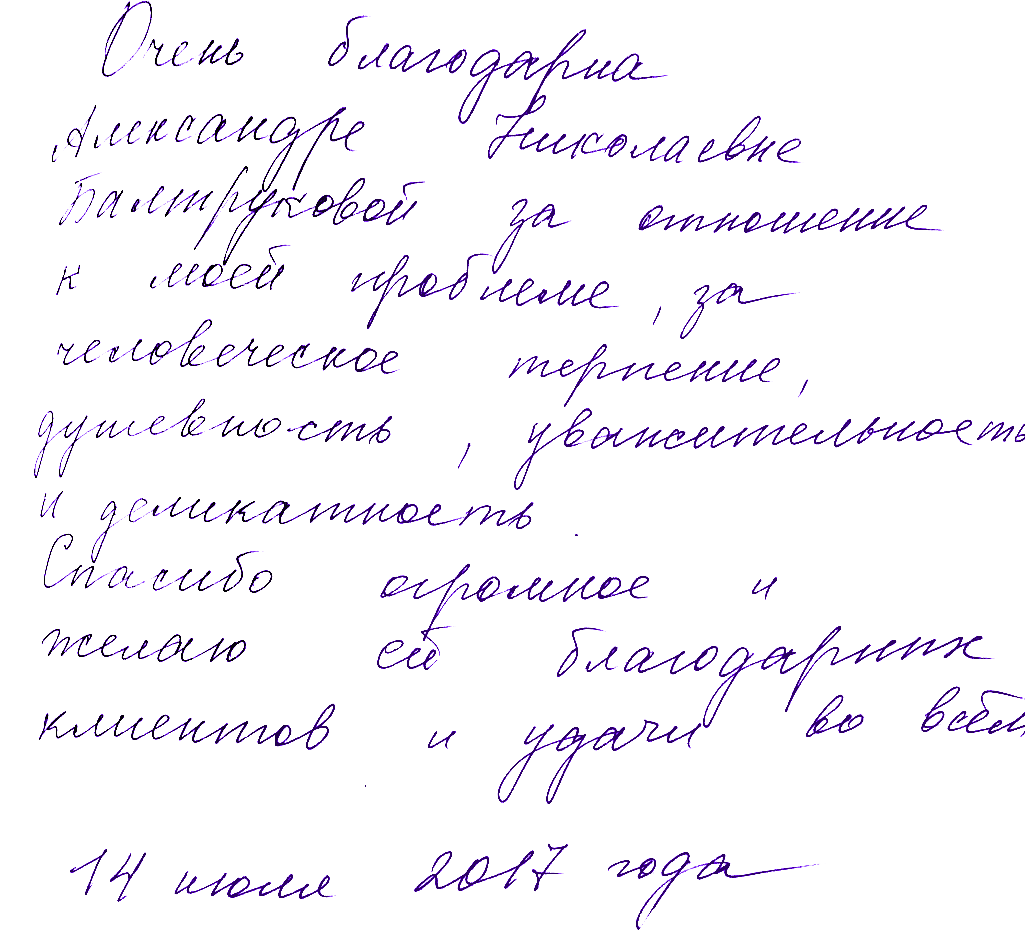 Очень благодарна
Александре Николаевне
Балтруковой за отношение
к моей проблеме, за
человеческое терпение,
душевность, уважительность
и деликатность.
Спасибо огромное и
желаю ей благодарных
клиентов и удачи во всём
14 июля 2017 года